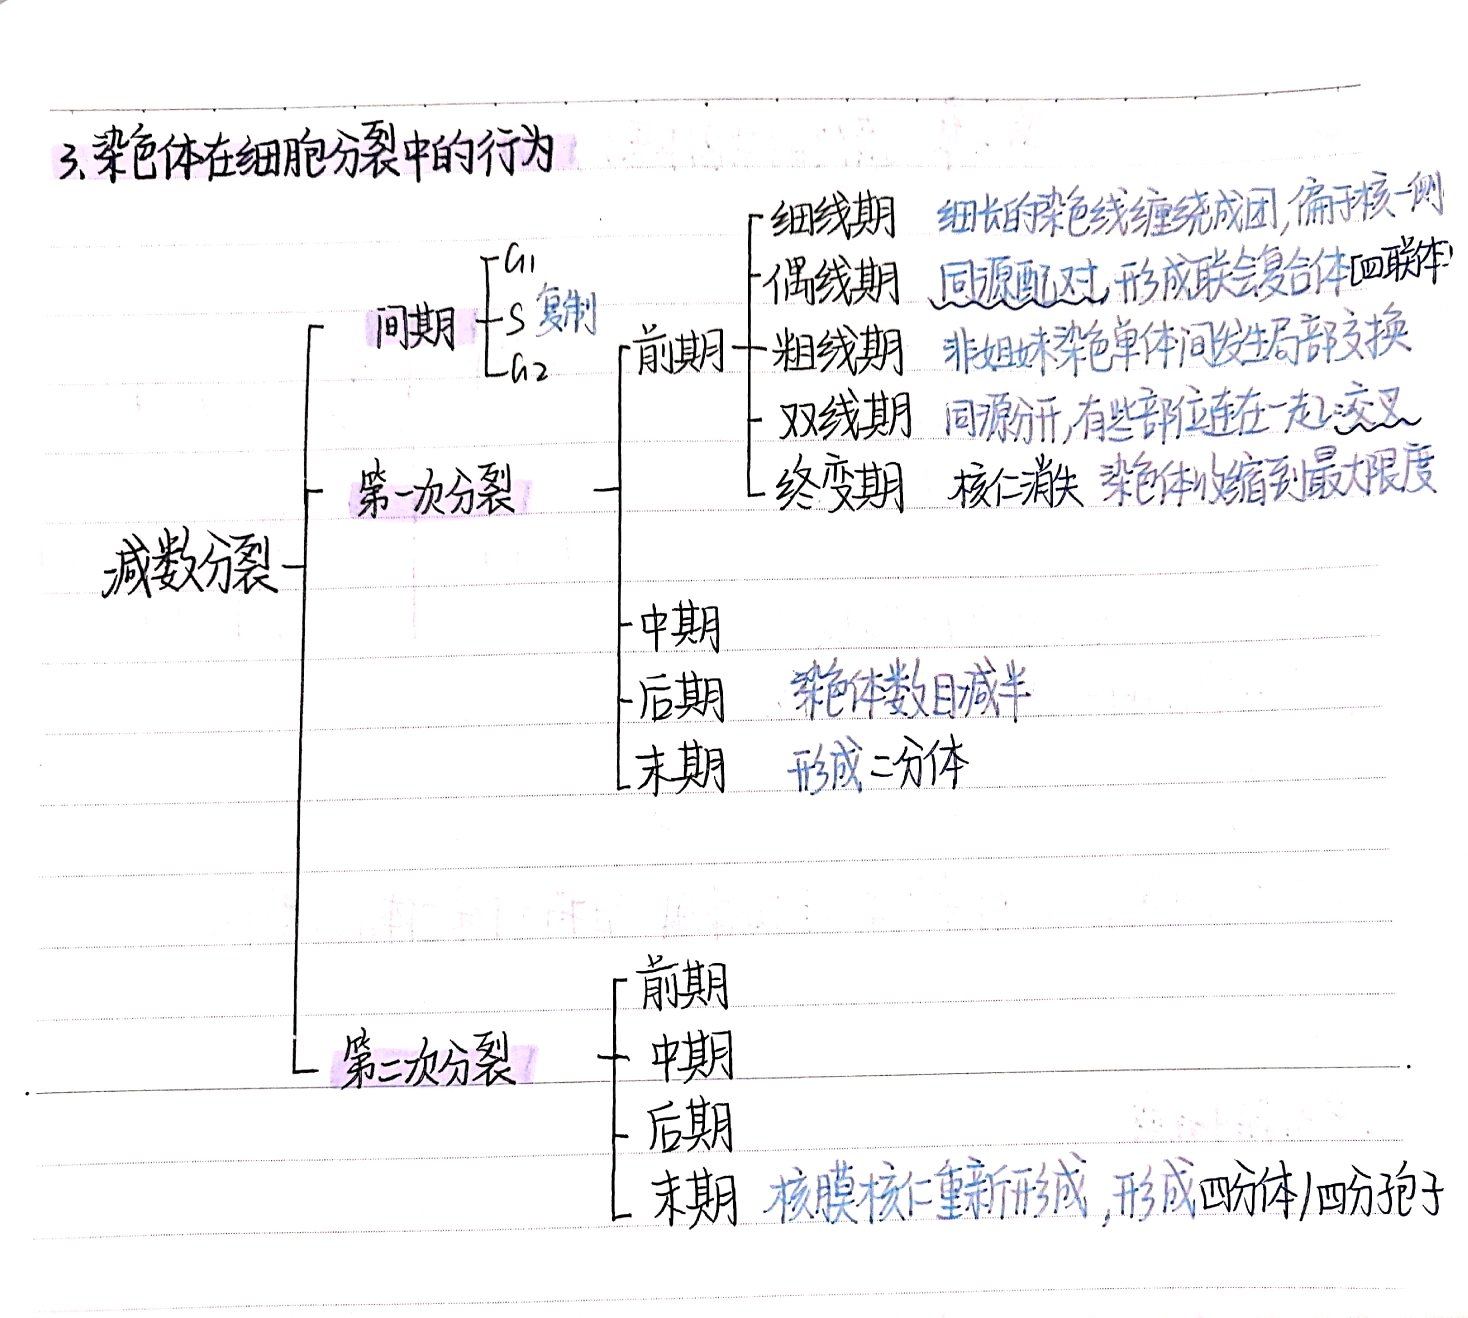 3.染色体在细胞分裂中的行为
细线期 细长的染色线缠绕成团,偏于核一侧
G1
偶线期 同源配对,形成联会复合体[四联体]
间期 S 复制
前期 粗线期 非姐妹染色单体间发生局部交换
G2
双线期 同源分开,有些部位连在一起:交叉
第一次分裂 终变期 核仁消失 染色体收缩到最大限度
减数分裂
中期
后期 染色体数目减半
末期 形成二分体
前期
第二次分裂 中期
后期
末期 核膜核仁重新形成,形成四分体/四分孢子